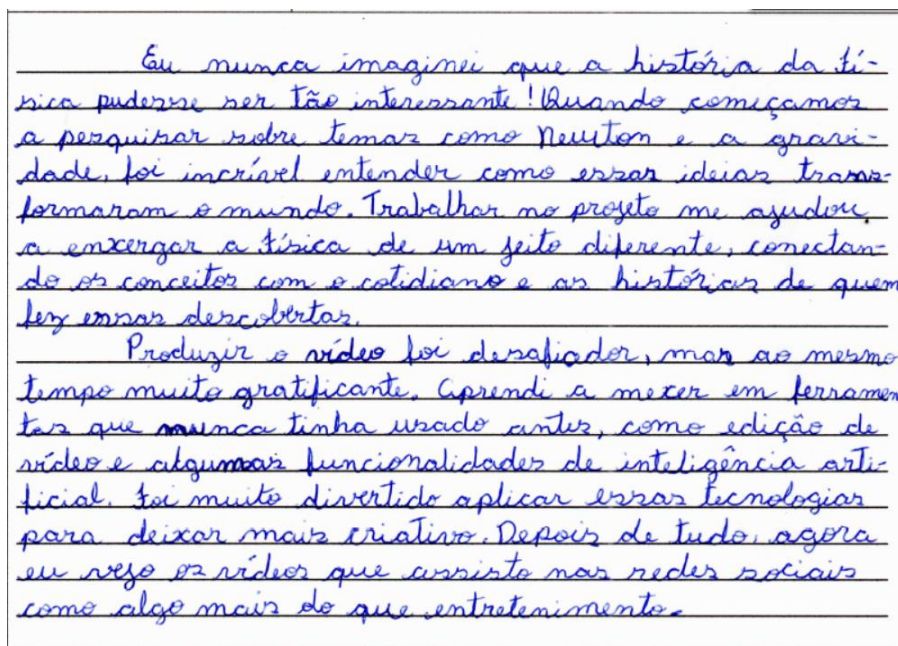 Eu nunca imaginei que a história da fí-
sica pudesse ser tão interessante! Quando começamos
a pesquisar sobre temas como Newton e a gravi-
dade, foi incrível entender como essas ideias trans-
formaram o mundo. Trabalhar no projeto me ajudou
a enxergar a física de um jeito diferente, conectan-
do os conceitos com o cotidiano e as histórias de quem
fez essas descobertas.
Produzir o vídeo foi desafiador, mas ao mesmo
tempo muito gratificante. Aprendi a mexer em ferramen
tas que nunca tinha usado antes, como edição de
vídeo e algumas funcionalidades de inteligência arti-
ficial. Foi muito divertido aplicar essas tecnologias
para deixar mais criativo. Depois de tudo, agora
eu vejo os vídeos que assisto nas redes sociais
como algo mais do que entretenimento.